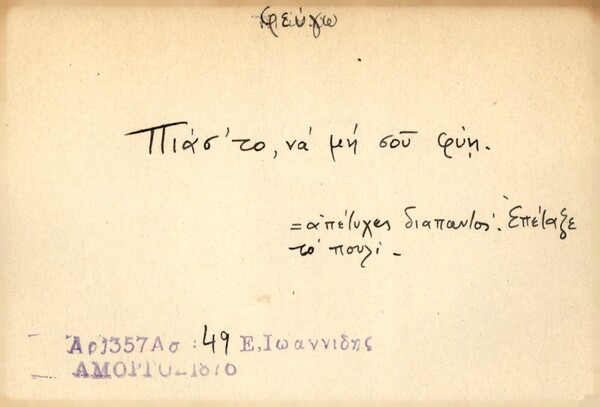 φεύγω
Πιάσ' το, νά μή σοῦ φύῃ.
= ἀπέτυχες διαπαντός. Ἐπέταξε
τό πουλί -
Ἀρ)357Ασ : 49 Ε, Ιωαννιδης
ΑΜΟΡΓΟΣ-1876